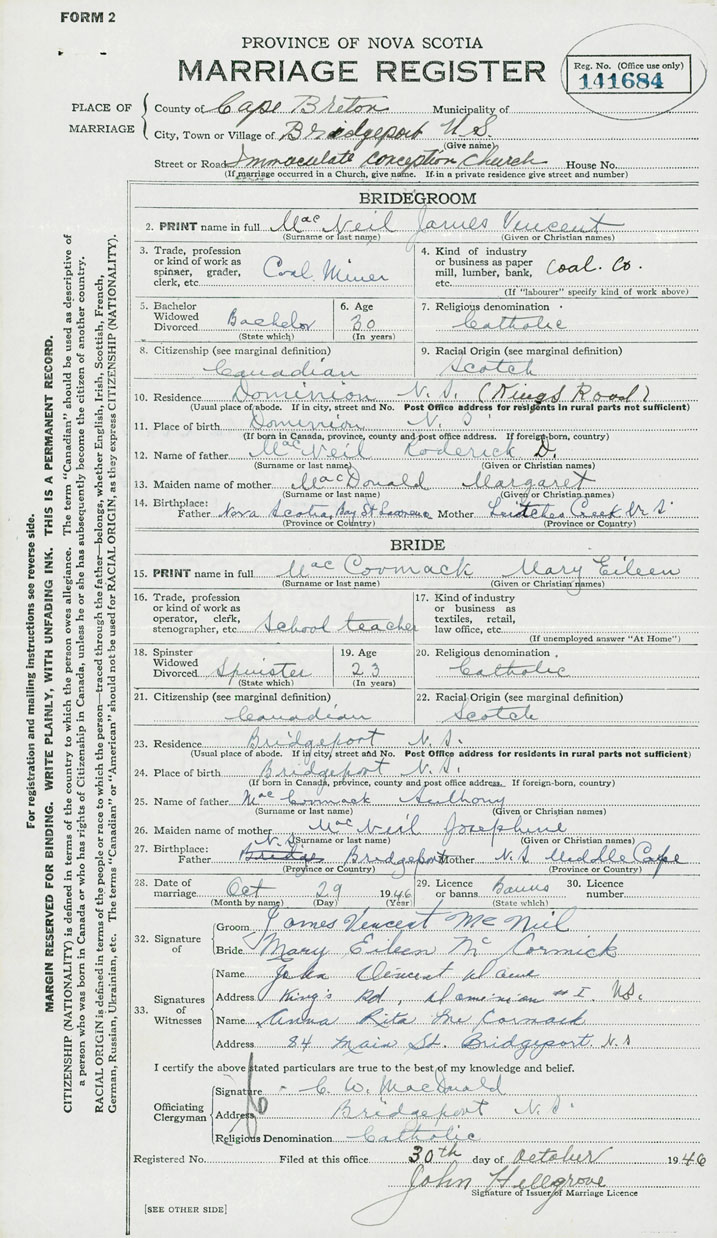 FORM 2
PROVINCE OF NOVA SCOTIA
MARRIAGE REGISTER
Reg. No. (Office use only)
141684
PLACE OF MARRIAGE
County of Cape Breton Municipality of
City, Town or Village of Bridgeport N.S.
(Give name)
Street or Road Immaculate Conception Church House No.
(If marriage occurred in a Church, give name. If in a private residence give street and number)
BRIDEGROOM
2. PRINT name in full MacNeil James Vincent
(Surname or last name) (Given or Christian names)
3. Trade, profession or kind of work as spinner, grader, clerk, etc. Coal Miner
4. Kind of industry or business as paper mill, lumber, bank, etc. Coal. Co.
(If "labourer" specify kind of work above)
5. Bachelor Widowed Divorced Bachelor (State which)
6. Age 30 (In years)
7. Religious denomination Catholic
8. Citizenship (see marginal definition) Canadian
9. Racial Origin (see marginal definition) Scotch
10. Residence Dominion N.S. (Kings Road)
(Usual place of abode. If in city, street and No. Post Office address for residents in rural parts not sufficient)
11. Place of birth Dominion N.S.
(If born in Canada, province, county and post office address. If foreign-born, country)
12. Name of father MacNeil Roderick D.
(Surname or last name) (Given or Christian names)
13. Maiden name of mother MacDonald Margaret
(Surname or last name) (Given or Christian names)
14. Birthplace: Father Nova Scotia Bay St Lawrence Mother Leitches Creek N.S.
(Province or Country) (Province or Country)
BRIDE
15. PRINT name in full MacCormack Mary Eileen
(Surname or last name) (Given or Christian names)
16. Trade, profession or kind of work as operator, clerk, stenographer, etc. School teacher
17. Kind of industry or business as textiles, retail, law office, etc.
(If unemployed answer "At Home")
18. Spinster Widowed Divorced Spinster (State which)
19. Age 23 (In years)
20. Religious denomination Catholic
21. Citizenship (see marginal definition) Canadian
22. Racial Origin (see marginal definition) Scotch
23. Residence Bridgeport N.S.
(Usual place of abode. If in city, street and No. Post Office address for residents in rural parts not sufficient)
24. Place of birth Bridgeport N.S.
(If born in Canada, province, county and post office address. If foreign-born, country)
25. Name of father MacCormack Anthony
(Surname or last name) (Given or Christian names)
26. Maiden name of mother MacNeil Josephine
(Surname or last name) (Given or Christian names)
27. Birthplace: Father N.S. Bridgeport Mother N.S. Middle Cape
(Province or Country) (Province or Country)
28. Date of marriage Oct 29 1946
(Month by name) (Day) (Year)
29. Licence or banns Banns (State which)
30. Licence number
32. Signature of
Groom James Vincent McNiel
Bride Mary Eileen McCormick
33. Signatures of Witnesses
Name John Vincent
Address King's Rd, Dominion #1. N.S.
Name Anna Rita McCormack
Address 84 Main St. Bridgeport. N.S
I certify the above stated particulars are true to the best of my knowledge and belief.
Officiating Clergyman
Signature C. W. MacDonald
Address Bridgeport N.S.
Religious Denomination Catholic
Registered No. Filed at this office 30th day of October 1946
John Hillgrove
Signature of Issuer of Marriage Licence
[SEE OTHER SIDE]
For registration and mailing instructions see reverse side.
MARGIN RESERVED FOR BINDING. WRITE PLAINLY, WITH UNFADING INK. THIS IS A PERMANENT RECORD.
CITIZENSHIP (NATIONALITY) is defined in terms of the country to which the person owes allegiance. The term "Canadian" should be used as descriptive of
a person who was born in Canada or who has rights of Citizenship in Canada, unless he or she has subsequently become the citizen of another country.
RACIAL ORIGIN is defined in terms of the people or race to which the person—traced through the father—belongs, whether English, Irish, Scottish, French,
German, Russian, Ukrainian, etc. The terms "Canadian" or "American" should not be used for RACIAL ORIGIN, as they express CITIZENSHIP (NATIONALITY).